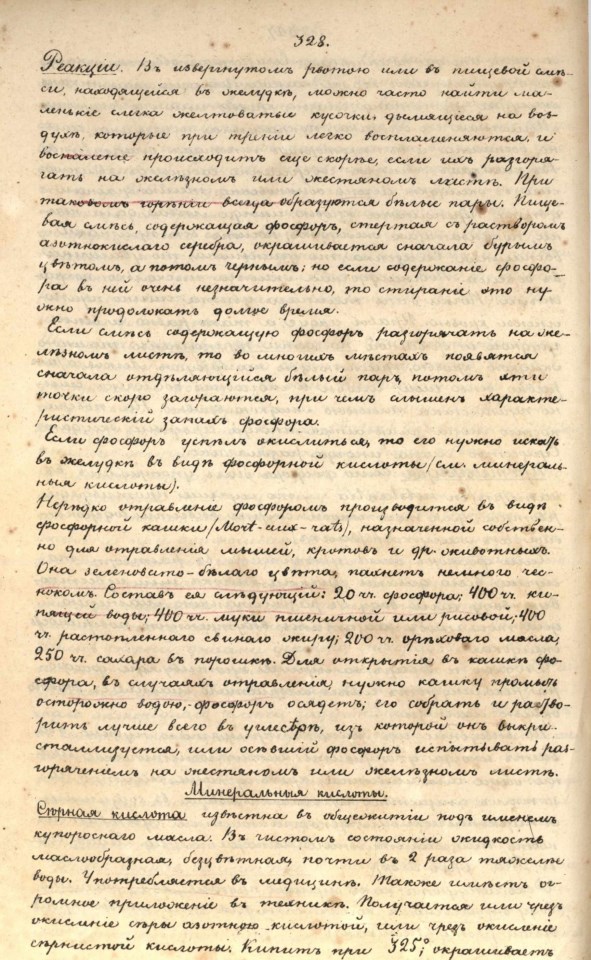 328.
Реакціи. Въ извергнутомъ рвотою или въ пищевой смѣ-
си, находящейся въ желудкѣ, можно часто найти ма-
ленькіе слегка желтоватые кусочки, дымящіеся на воз-
духѣ, которые при треніи легко воспламеняются, и
воспаленіе происходитъ еще скорѣе, если ихъ разгоря-
чать на желѣзномъ или жестяномъ листѣ. При
таковомъ горѣніи всегда образуются бѣлые пары. Пище-
вая смѣсь, содержащая фосфоръ, стертая съ растворомъ
азотнокислаго серебра, окрашивается сначала бурымъ
цвѣтомъ, а потомъ чернымъ; но если содержаніе фосфо-
ра въ ней очень незначительно, то стираніе это ну-
жно продолжать долгое время.
Если смѣсь содержащую фосфоръ разгорячать на же-
лѣзномъ листѣ, то во многихъ мѣстахъ появятся
сначала отдѣляющійся бѣлый паръ, потомъ эти
точки скоро загораются, при чемъ слышенъ характе-
ристическій запахъ фосфора.
Если фосфоръ успѣлъ окислиться, то его нужно искать
въ желудкѣ въ видѣ фосфорной кислоты (см. минераль-
ныя кислоты).
Нерѣдко отравленіе фосфоромъ производится въ видѣ
фосфорной кашки (Mort-aux-rats), назначенной собствен-
но для отравленія мышей, кротовъ и др. животныхъ.
Она зеленовато-бѣлаго цвѣта, пахнетъ немного чес-
нокомъ. Составъ ея слѣдующій: 20 чч. фосфора; 400 чч. ки-
пящей воды; 400 чч. муки пшеничной или рисовой; 400
чч. растопленнаго свинаго жиру; 200 чч. орѣховаго масла,
250 чч. сахара въ порошкѣ. Для открытія въ кашкѣ фо-
сфора, въ случаяхъ отравленія, нужно кашку промыть
осторожно водою, – фосфоръ осядетъ; его собрать и раство-
рить лучше всего въ углесѣрѣ, изъ которой онъ выкри-
сталлизуется, или осѣвшій фосфоръ испытывать раз-
горяченіемъ на жестяномъ или желѣзномъ листѣ.
Минеральныя кислоты.
Сѣрная кислота извѣстна въ общежитіи подъ именемъ
купороснаго масла. Въ чистомъ состояніи жидкость
маслообразная, безцвѣтная, почти въ 2 раза тяжелѣе
воды. Употребляется въ медицинѣ. Также имѣетъ ог-
ромное приложеніе въ техникѣ. Получается или чрезъ
окисленіе сѣры азотною кислотой, или чрезъ окисленіе
сѣрнистой кислоты. Кипитъ при 325°; окрашиваетъ